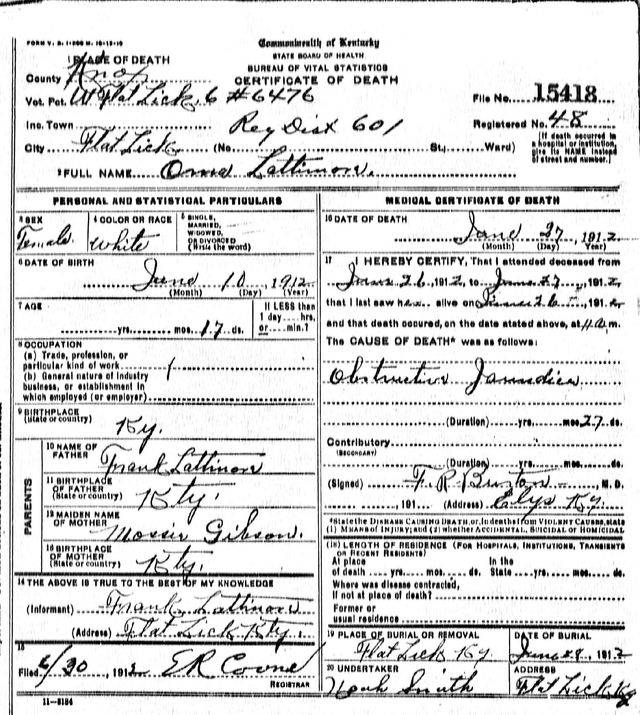 FORM V. S. 1-200 M. 10-13-10
Commonwealth of Kentucky
STATE BOARD OF HEALTH
BUREAU OF VITAL STATISTICS
CERTIFICATE OF DEATH
1 PLACE OF DEATH
County Knox
Vot. Pct. W Flat Lick 6 #6476
File No. 15418
Inc. Town Reg Dist 601
Registered No. 48
City Flat Lick (No. St.; Ward)
(If death occurred in a hospital or institution, give its NAME instead of street and number.)
2 FULL NAME Oma Lattimore.
PERSONAL AND STATISTICAL PARTICULARS
3 SEX Female
4 COLOR OR RACE White
5 SINGLE, MARRIED, WIDOWED, OR DIVORCED (Write the word)
6 DATE OF BIRTH June 10, 1912
(Month) (Day) (Year)
7 AGE yrs. mos. 17 ds.
If LESS than 1 day... hrs. or... min.?
8 OCCUPATION
(a) Trade, profession, or particular kind of work
(b) General nature of industry business, or establishment in which employed (or employer)
9 BIRTHPLACE (State or country) Ky.
PARENTS
10 NAME OF FATHER Frank Lattimore
11 BIRTHPLACE OF FATHER (State or country) Kty.
12 MAIDEN NAME OF MOTHER Gibson.
13 BIRTHPLACE OF MOTHER (State or country) Kty.
14 THE ABOVE IS TRUE TO THE BEST OF MY KNOWLEDGE
(Informant) Frank Lattimore
(Address) Flat Lick Kty.
15
Filed 6/30, 1912 E R
REGISTRAR
11-5184
MEDICAL CERTIFICATE OF DEATH
16 DATE OF DEATH June 27, 1912
(Month) (Day) (Year)
17 I HEREBY CERTIFY, That I attended deceased from
June 26, 1912, to June 27, 1912
that I last saw her alive on June 26, 1912
and that death occured, on the date stated above, at 4 a.m.
The CAUSE OF DEATH* was as follows:
Obstructive Jaundice
(Duration) yrs. mos. 27 ds.
Contributory
(SECONDARY)
(Duration) yrs. mos. ds.
(Signed) F. R. Burton, M.D.
191 (Address) Elys Ky.
*State the DISEASE CAUSING DEATH, or, in deaths from VIOLENT CAUSES, state (1) MEANS OF INJURY; and (2) whether ACCIDENTAL, SUICIDAL or HOMICIDAL
(18) LENGTH OF RESIDENCE (FOR HOSPITALS, INSTITUTIONS, TRANSIENTS OR RECENT RESIDENTS)
At place of death yrs. mos. ds. In the State yrs. mos. ds.
Where was disease contracted, if not at place of death?
Former or usual residence
19 PLACE OF BURIAL OR REMOVAL Flat Lick Ky.
DATE OF BURIAL June 28, 1912
20 UNDERTAKER Noah Smith
ADDRESS Flat Lick Ky